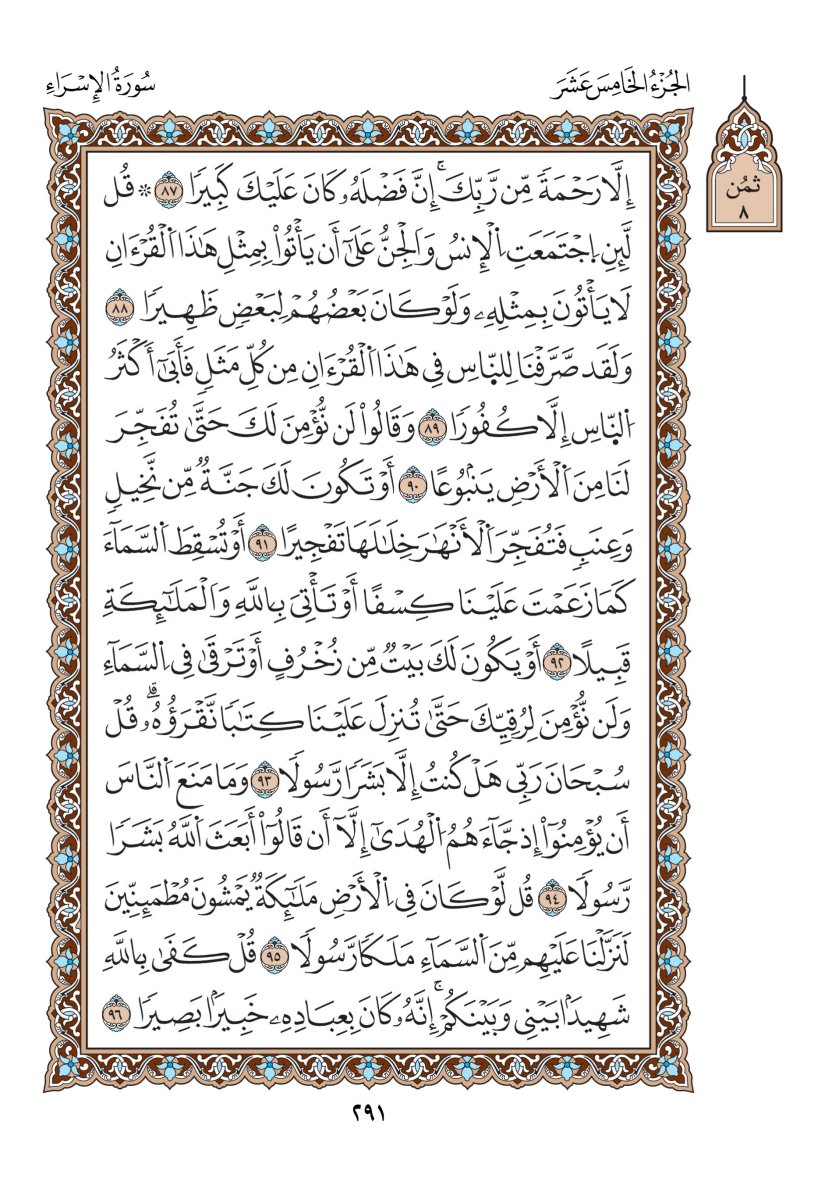 الجُزْءُ الخَامِسَ عَشَرَ
سُورَةُ الإِسْرَاءِ
ثمُن
٨
إِلَّا رَحْمَةً مِّن رَّبِّكَۚ إِنَّ فَضْلَهُۥ كَانَ عَلَيْكَ كَبِيرًا ٨٧ ۞ قُل
لَّئِنِ اِ۪جْتَمَعَتِ اِ۬لْإِنسُ وَالْجِنُّ عَلَىٰٓ أَن يَأْتُوا۟ بِمِثْلِ هَٰذَا اَ۬لْقُرْءَانِ
لَا يَأْتُونَ بِمِثْلِهِۦ وَلَوْ كَانَ بَعْضُهُمْ لِبَعْضٍ ظَهِيرًا ٨٨
وَلَقَد صَّرَّفْنَا لِلنَّاسِ فِي هَٰذَا اَ۬لْقُرْءَانِ مِن كُلِّ مَثَلٍ فَأَبَىٰٓ أَكْثَرُ
اُ۬لنَّاسِ إِلَّا كُفُورًا ٨٩ وَقَالُوا۟ لَن نُّؤْمِنَ لَكَ حَتَّىٰ تُفَجِّرَ
لَنَا مِنَ اَ۬لْأَرْضِ يَنۢبُوعًا ٩٠ أَوْ تَكُونَ لَكَ جَنَّةٌ مِّن نَّخِيلٍ
وَعِنَبٍ فَتُفَجِّرَ اَ۬لْأَنْهَٰرَ خِلَٰلَهَا تَفْجِيرًا ٩١ أَوْ تُسْقِطَ اَ۬لسَّمَآءَ
كَمَا زَعَمْتَ عَلَيْنَا كِسْفًا أَوْ تَأْتِيَ بِاللَّهِ وَالْمَلَٰٓئِكَةِ
قَبِيلًا ٩٢ أَوْ يَكُونَ لَكَ بَيْتٌ مِّن زُخْرُفٍ أَوْ تَرْقَىٰ فِي اِ۬لسَّمَآءِ
وَلَن نُّؤْمِنَ لِرُقِيِّكَ حَتَّىٰ تُنزِلَ عَلَيْنَا كِتَٰبًا نَّقْرَؤُهُۥۗ قُلْ
سُبْحَانَ رَبِّي هَلْ كُنتُ إِلَّا بَشَرًا رَّسُولًا ٩٣ وَمَا مَنَعَ اَ۬لنَّاسَ
أَن يُؤْمِنُوٓا۟ إِذ جَّآءَهُمُ اُ۬لْهُدَىٰٓ إِلَّآ أَن قَالُوٓا۟ أَبَعَثَ اَ۬للَّهُ بَشَرًا
رَّسُولًا ٩٤ قُل لَّوْ كَانَ فِي اِ۬لْأَرْضِ مَلَٰٓئِكَةٌ يَمْشُونَ مُطْمَئِنِّينَ
لَنَزَّلْنَا عَلَيْهِم مِّنَ اَ۬لسَّمَآءِ مَلَكًا رَّسُولًا ٩٥ قُلْ كَفَىٰ بِاللَّهِ
شَهِيدًۢا بَيْنِي وَبَيْنَكُمْۚ إِنَّهُۥ كَانَ بِعِبَادِهِۦ خَبِيرًۢا بَصِيرًا ٩٦
٢٩١